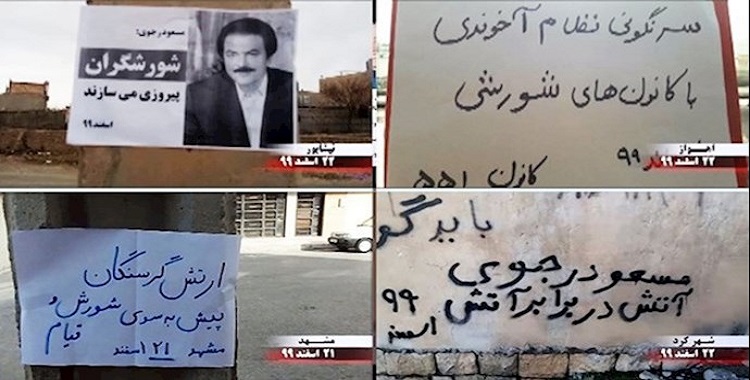 مسعود رجوی:
شورشگران
پیروزی می سازند
اسفند ۹۹
نیشابور
۲۲ اسفند ۹۹
سرنگونی نظام آخوندی
با کانون‌های شورشی
۹۹
کانون ۵۵۱
اهواز
۲۲ اسفند ۹۹
ارتش گرسنگان
پیش به سوی شورش و
قیام
مشهد ۱۲۱ اسفند
مشهد
۲۱ اسفند ۹۹
مسعود رجوی
آتش در برابر آتش ۹۹
اسفند
شهر کرد
۲۲ اسفند ۹۹